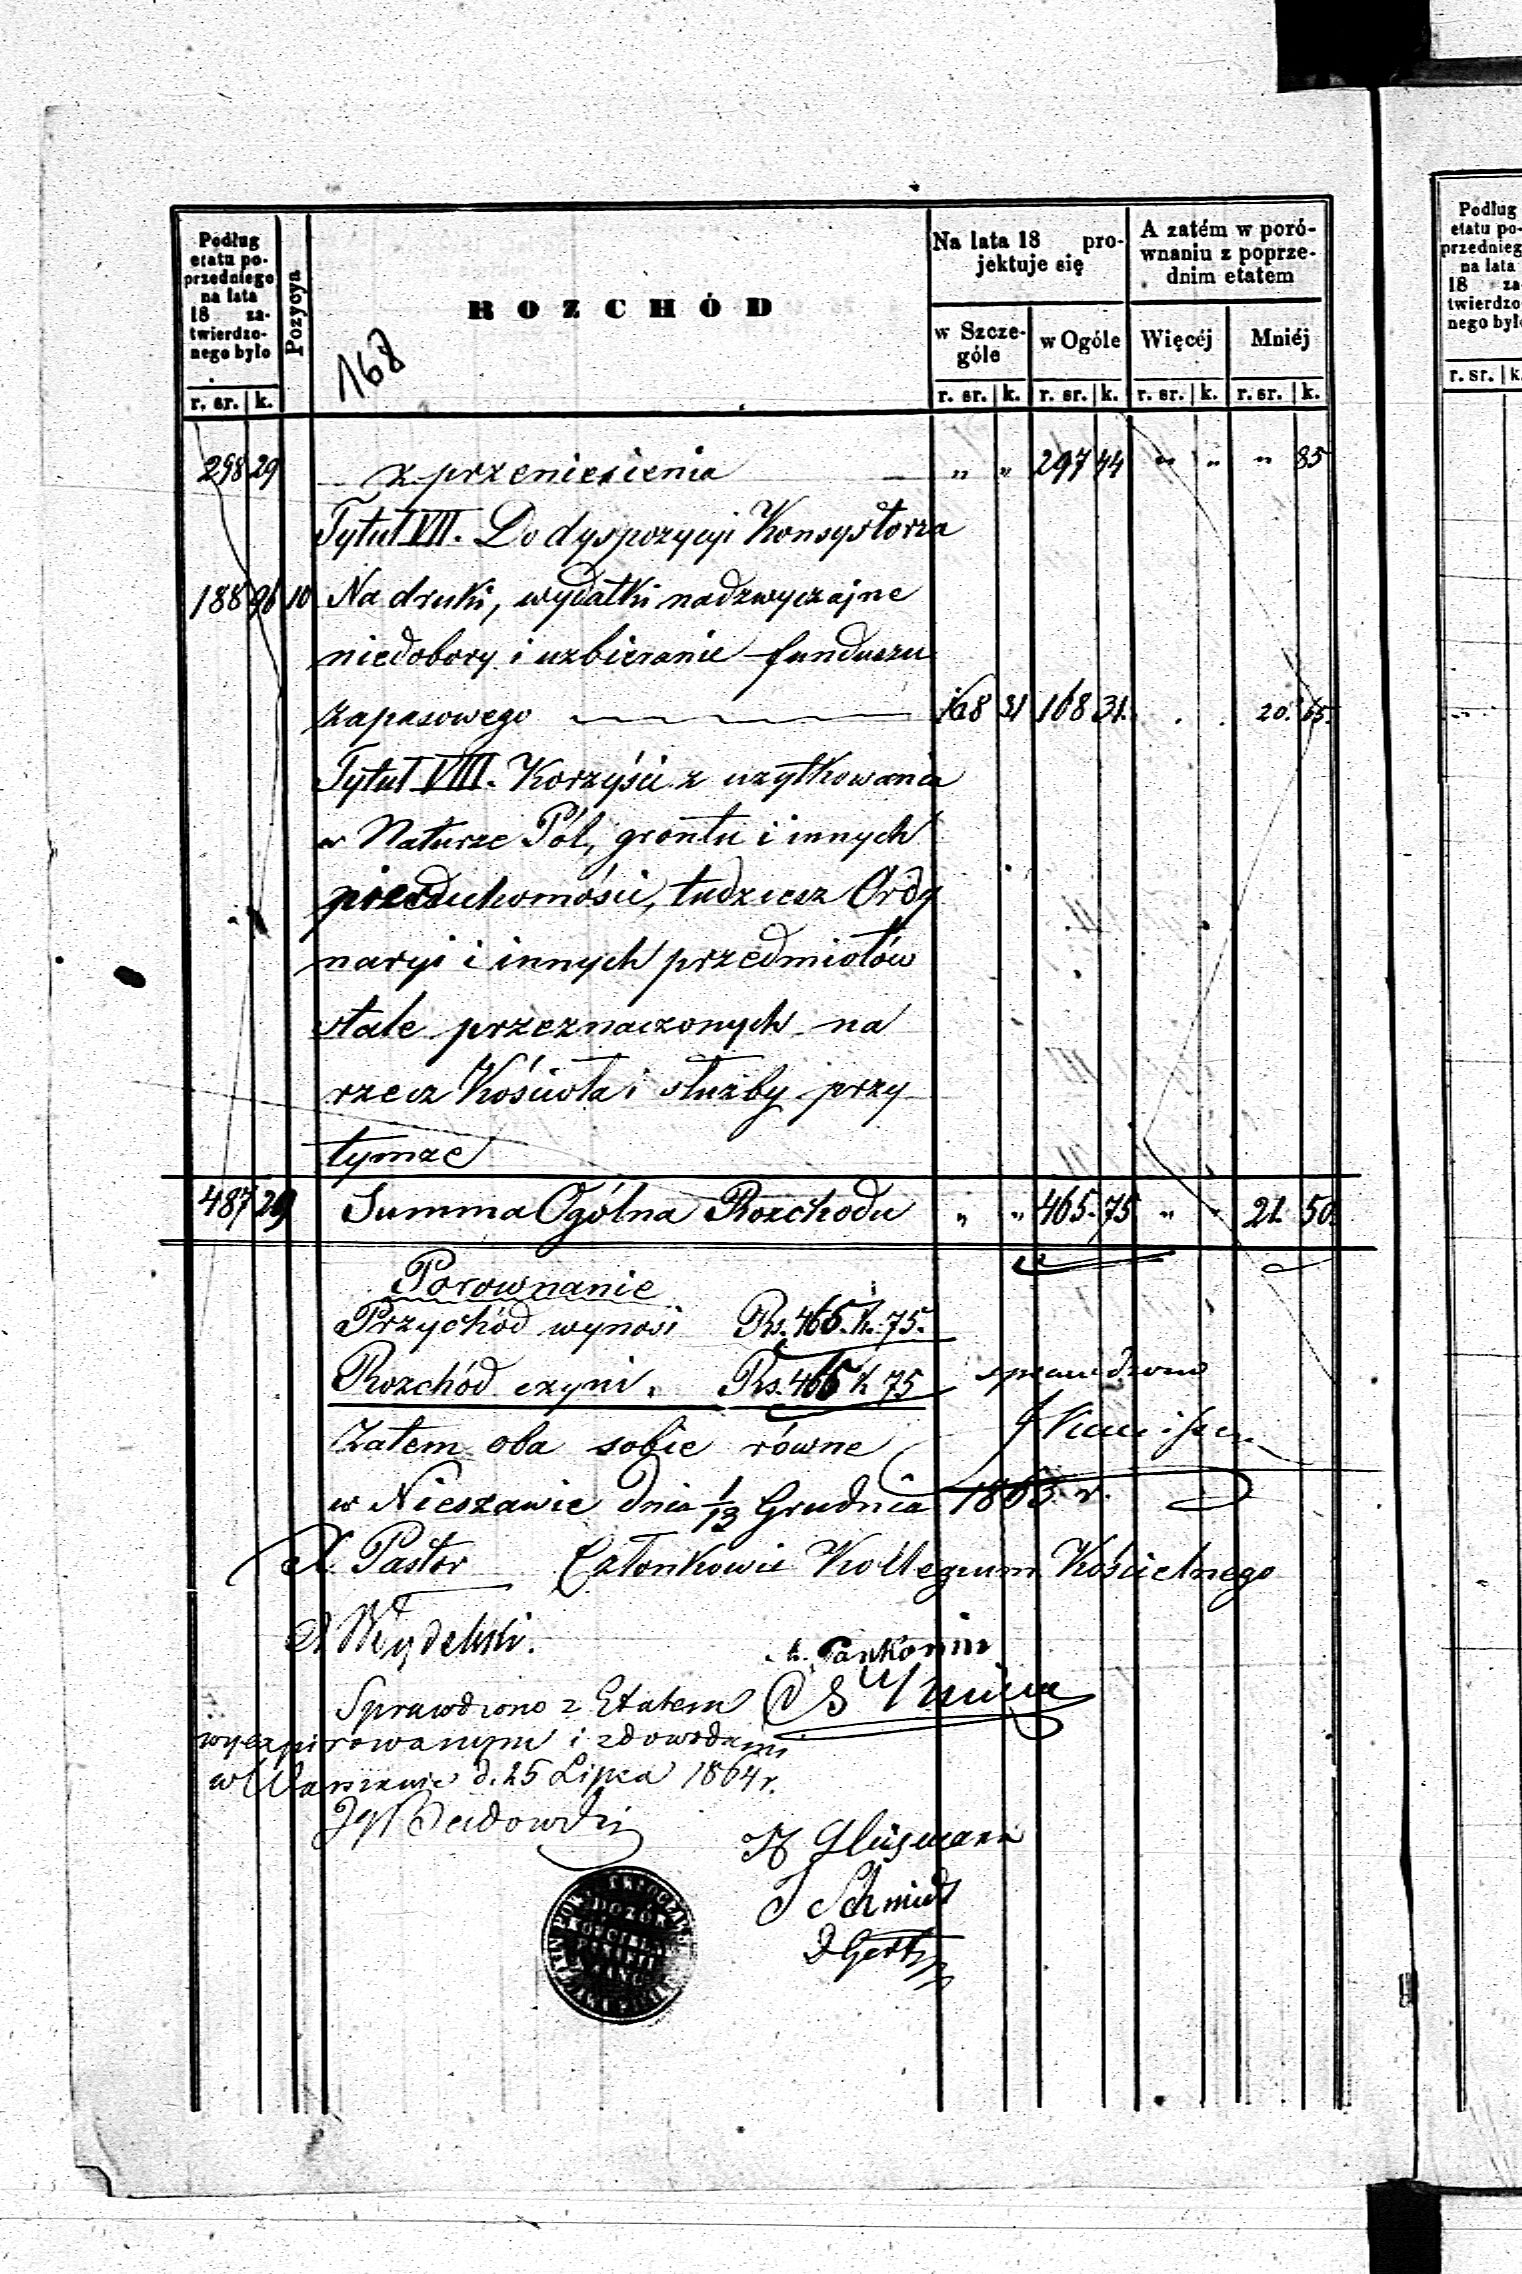 Podług etatu poprzedniego na lata 18 zatwierdzonego było
Pozycya
ROZCHÓD
Na lata 18 projektuje się
A zatém w porównaniu z poprzednim etatem
w Szczególe
w Ogóle
Więcéj
Mniéj
r. sr. k.
r. sr. k. r. sr. k. r. sr. k. r. sr. k.
168
298 29 z przeniesienia „ „ 297 44 „ „ „ 85
Tytuł VII. Do dyspozycyi Konsystorza
188 96 10 Na druki, wydatki nadzwyczajne
niedobory i uzbieranie funduszu
zapasowego 168 31 168 31. . . 20. 65.
Tytuł VIII. Korzyści z uzytkowania
w Naturze Pól, grontu i innych
nieruchomości, tudziesz Ordy
naryi i innych przedmiotów
stale przeznaczonych na
rzecz Kościoła i służby przy
tymze
487 29 Summa Ogólna Rozchodu „ „ 465. 75 „ „ 21. 50.
Porownanie
Przychód wynosi Rs. 465. k. 75.
Rozchód czyni. Rs. 465 k 75
sprawdzono
Zatem oba sobie równe
w Nieszawie dnia 1/13 Grudnia 1863 r.
X. Pastor Członkowie Kollegium Kościelnego
Pankonin
Sprawdzono z Etatem
wyexpirowanym i zdowodami
w Warszawie d. 25 Lipca 1864 r.
Glüsmann
J Schmidt
D Gertz
DOZÓR
Podług etatu po-
przednieg
na lata
18 za
twierdzo
nego był
r. sr. k.